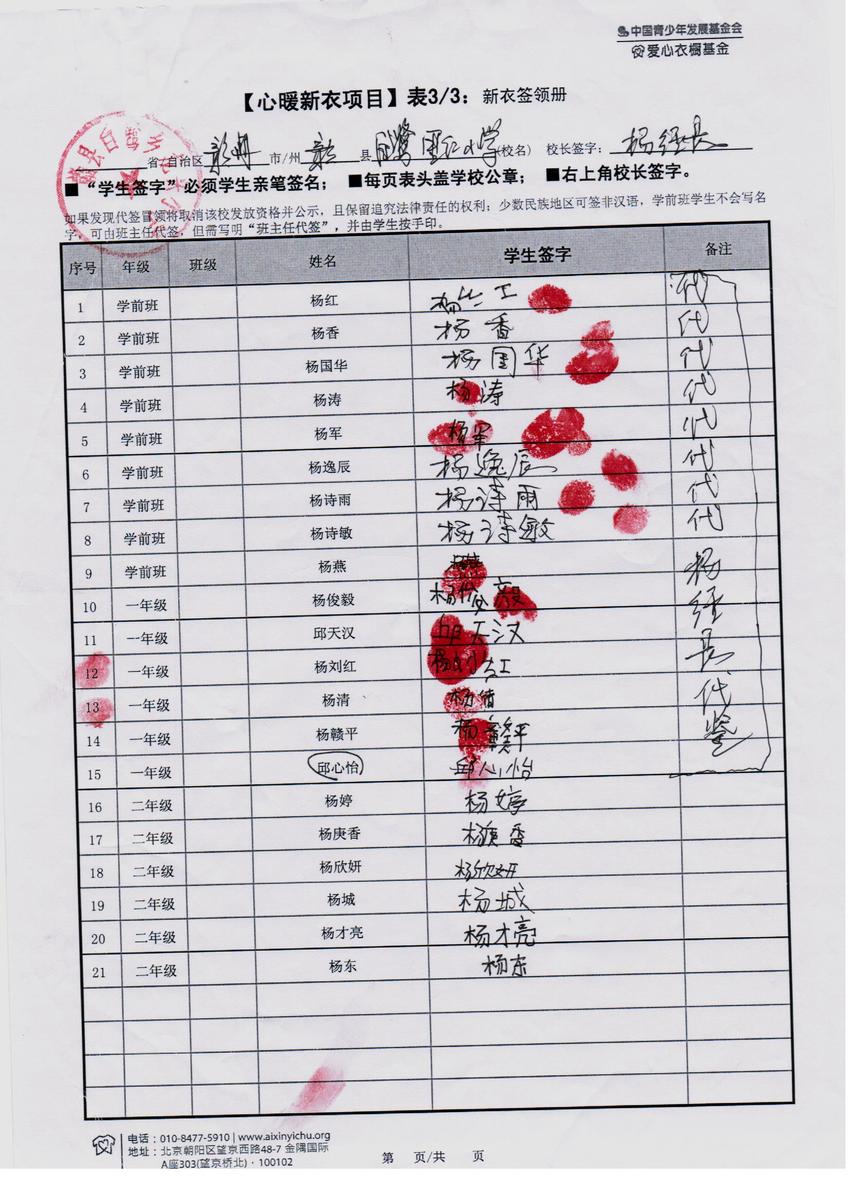 中国青少年发展基金会
爱心衣橱基金
【心暖新衣项目】表3/3：新衣签领册
省/自治区 市/州 县 小学(校名) 校长签字：杨经长
■“学生签字”必须学生亲笔签名； ■每页表头盖学校公章； ■右上角校长签字。
如果发现代签冒领将取消该校发放资格并公示，且保留追究法律责任的权利；少数民族地区可签非汉语，学前班学生不会写名
字，可由班主任代签，但需写明“班主任代签”，并由学生按手印。
序号 年级 班级 姓名 学生签字 备注
1 学前班 杨红 代
2 学前班 杨香 杨香 代
3 学前班 杨国华 杨国华 代
4 学前班 杨涛 杨涛 代
5 学前班 杨军 杨军 代
6 学前班 杨逸辰 杨逸辰 代
7 学前班 杨诗雨 杨诗雨 代
8 学前班 杨诗敏 杨诗敏 代
9 学前班 杨燕 杨
10 一年级 杨俊毅 杨俊毅 经
11 一年级 邱天汉 邱天汉 长
12 一年级 杨刘红 杨刘红
13 一年级 杨清 杨清 代
14 一年级 杨赣平 杨赣平 鉴
15 一年级 邱心怡 邱心怡
16 二年级 杨婷 杨婷
17 二年级 杨庚香 杨庚香
18 二年级 杨欣妍 杨欣妍
19 二年级 杨城 杨城
20 二年级 杨才亮 杨才亮
21 二年级 杨东 杨东
电话：010-8477-5910 | www.aixinyichu.org
地址：北京朝阳区望京西路48-7 金隅国际
A座303(望京桥北)·100102
第 页/共 页